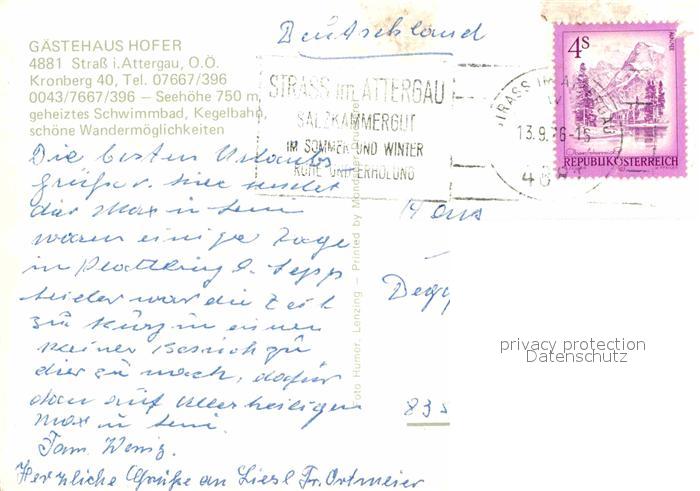 Deutschland
GÄSTEHAUS HOFER
4881 Straß i.Attergau, O.Ö.
Kronberg 40, Tel. 07667/396
0043/7667/396 – Seehöhe 750 m,
geheiztes Schwimmbad, Kegelbahn,
schöne Wandermöglichkeiten
STRASS im ATTERGAU
SALZKAMMERGUT
IM SOMMER UND WINTER
RUHE UND ERHOLUNG
STRASS IM ATTERGAU
13.9.76-15
4881
4S
REPUBLIK ÖSTERREICH
Die besten Urlaubs
grüße v. hier sendet
der Max u
waren einige Tage
in Plattling b. Sepp
leider war die Zeit
zu kurz um einen
kleinen Besuch zu
dir zu mach, dafür
dan auf Allerheiligen
Max u
Fam. Wenig.
Herzliche Grüße an Liesl Fr. Ortmeier
Foto Humer, Lenzing – Printed by Mondsee
Hans
Degg
835
privacy protection
Datenschutz